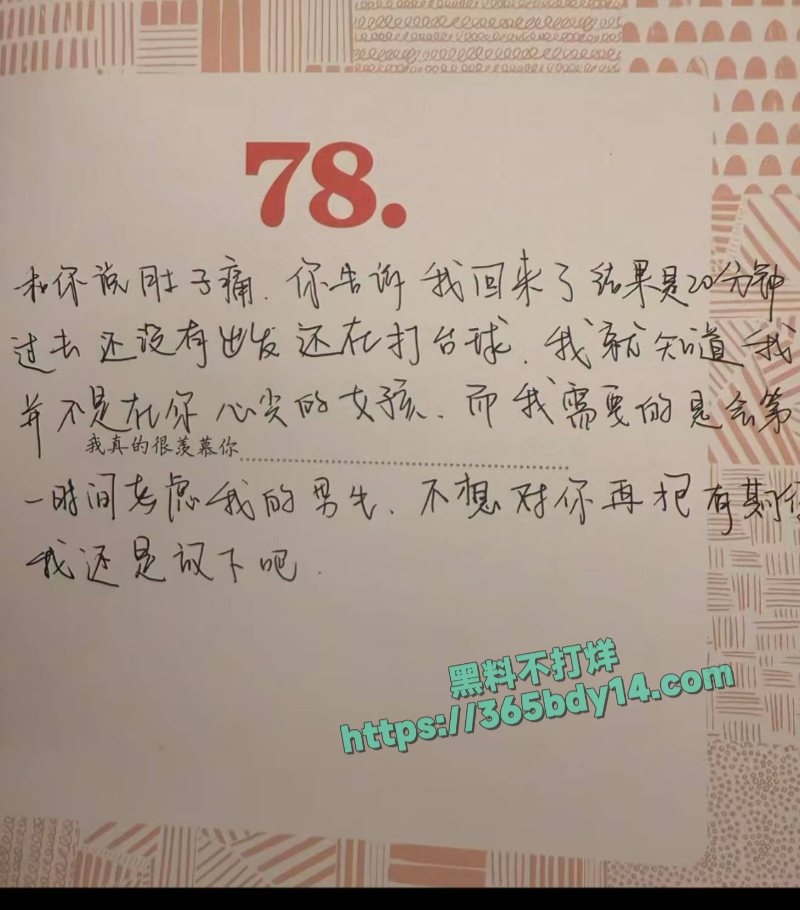 78.
和你说肚子痛.你告诉我回来了结果是20分钟
过去还没有出发还在打台球.我就知道我
并不是在你心尖的女孩.而我需要的是会第
我真的很羡慕你
一时间考虑我的男生.不想对你再抱有期待
我还是放下吧.
黑料不打烊
https://365bdy14.com